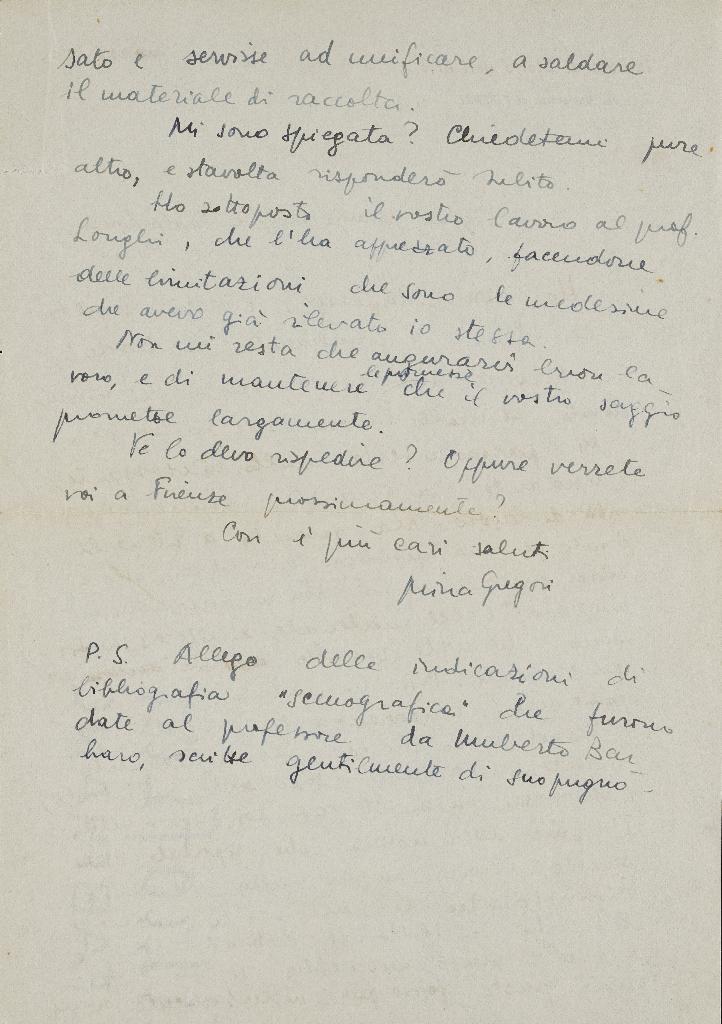 sato e servisse ad unificare, a saldare
il materiale di raccolta.
Mi sono spiegata? Chiedetemi pure
altro, e stavolta risponderò subito.
Ho sottoposto il vostro lavoro al prof.
Longhi, che l'ha apprezzato, facendone
delle limitazioni che sono le medesime
che avevo già rilevato io stessa.
Non mi resta che augurarvi buon la-
voro, e di mantenere le promesse che il vostro saggio
promette largamente.
Ve lo devo rispedire? Oppure verrete
voi a Firenze prossimamente?
Con i più cari saluti
Mina Gregori
P.S. Allego delle indicazioni di
bibliografia "scenografica" che furono
date al professore da Umberto Bar
baro, scritte gentilmente di suo pugno.